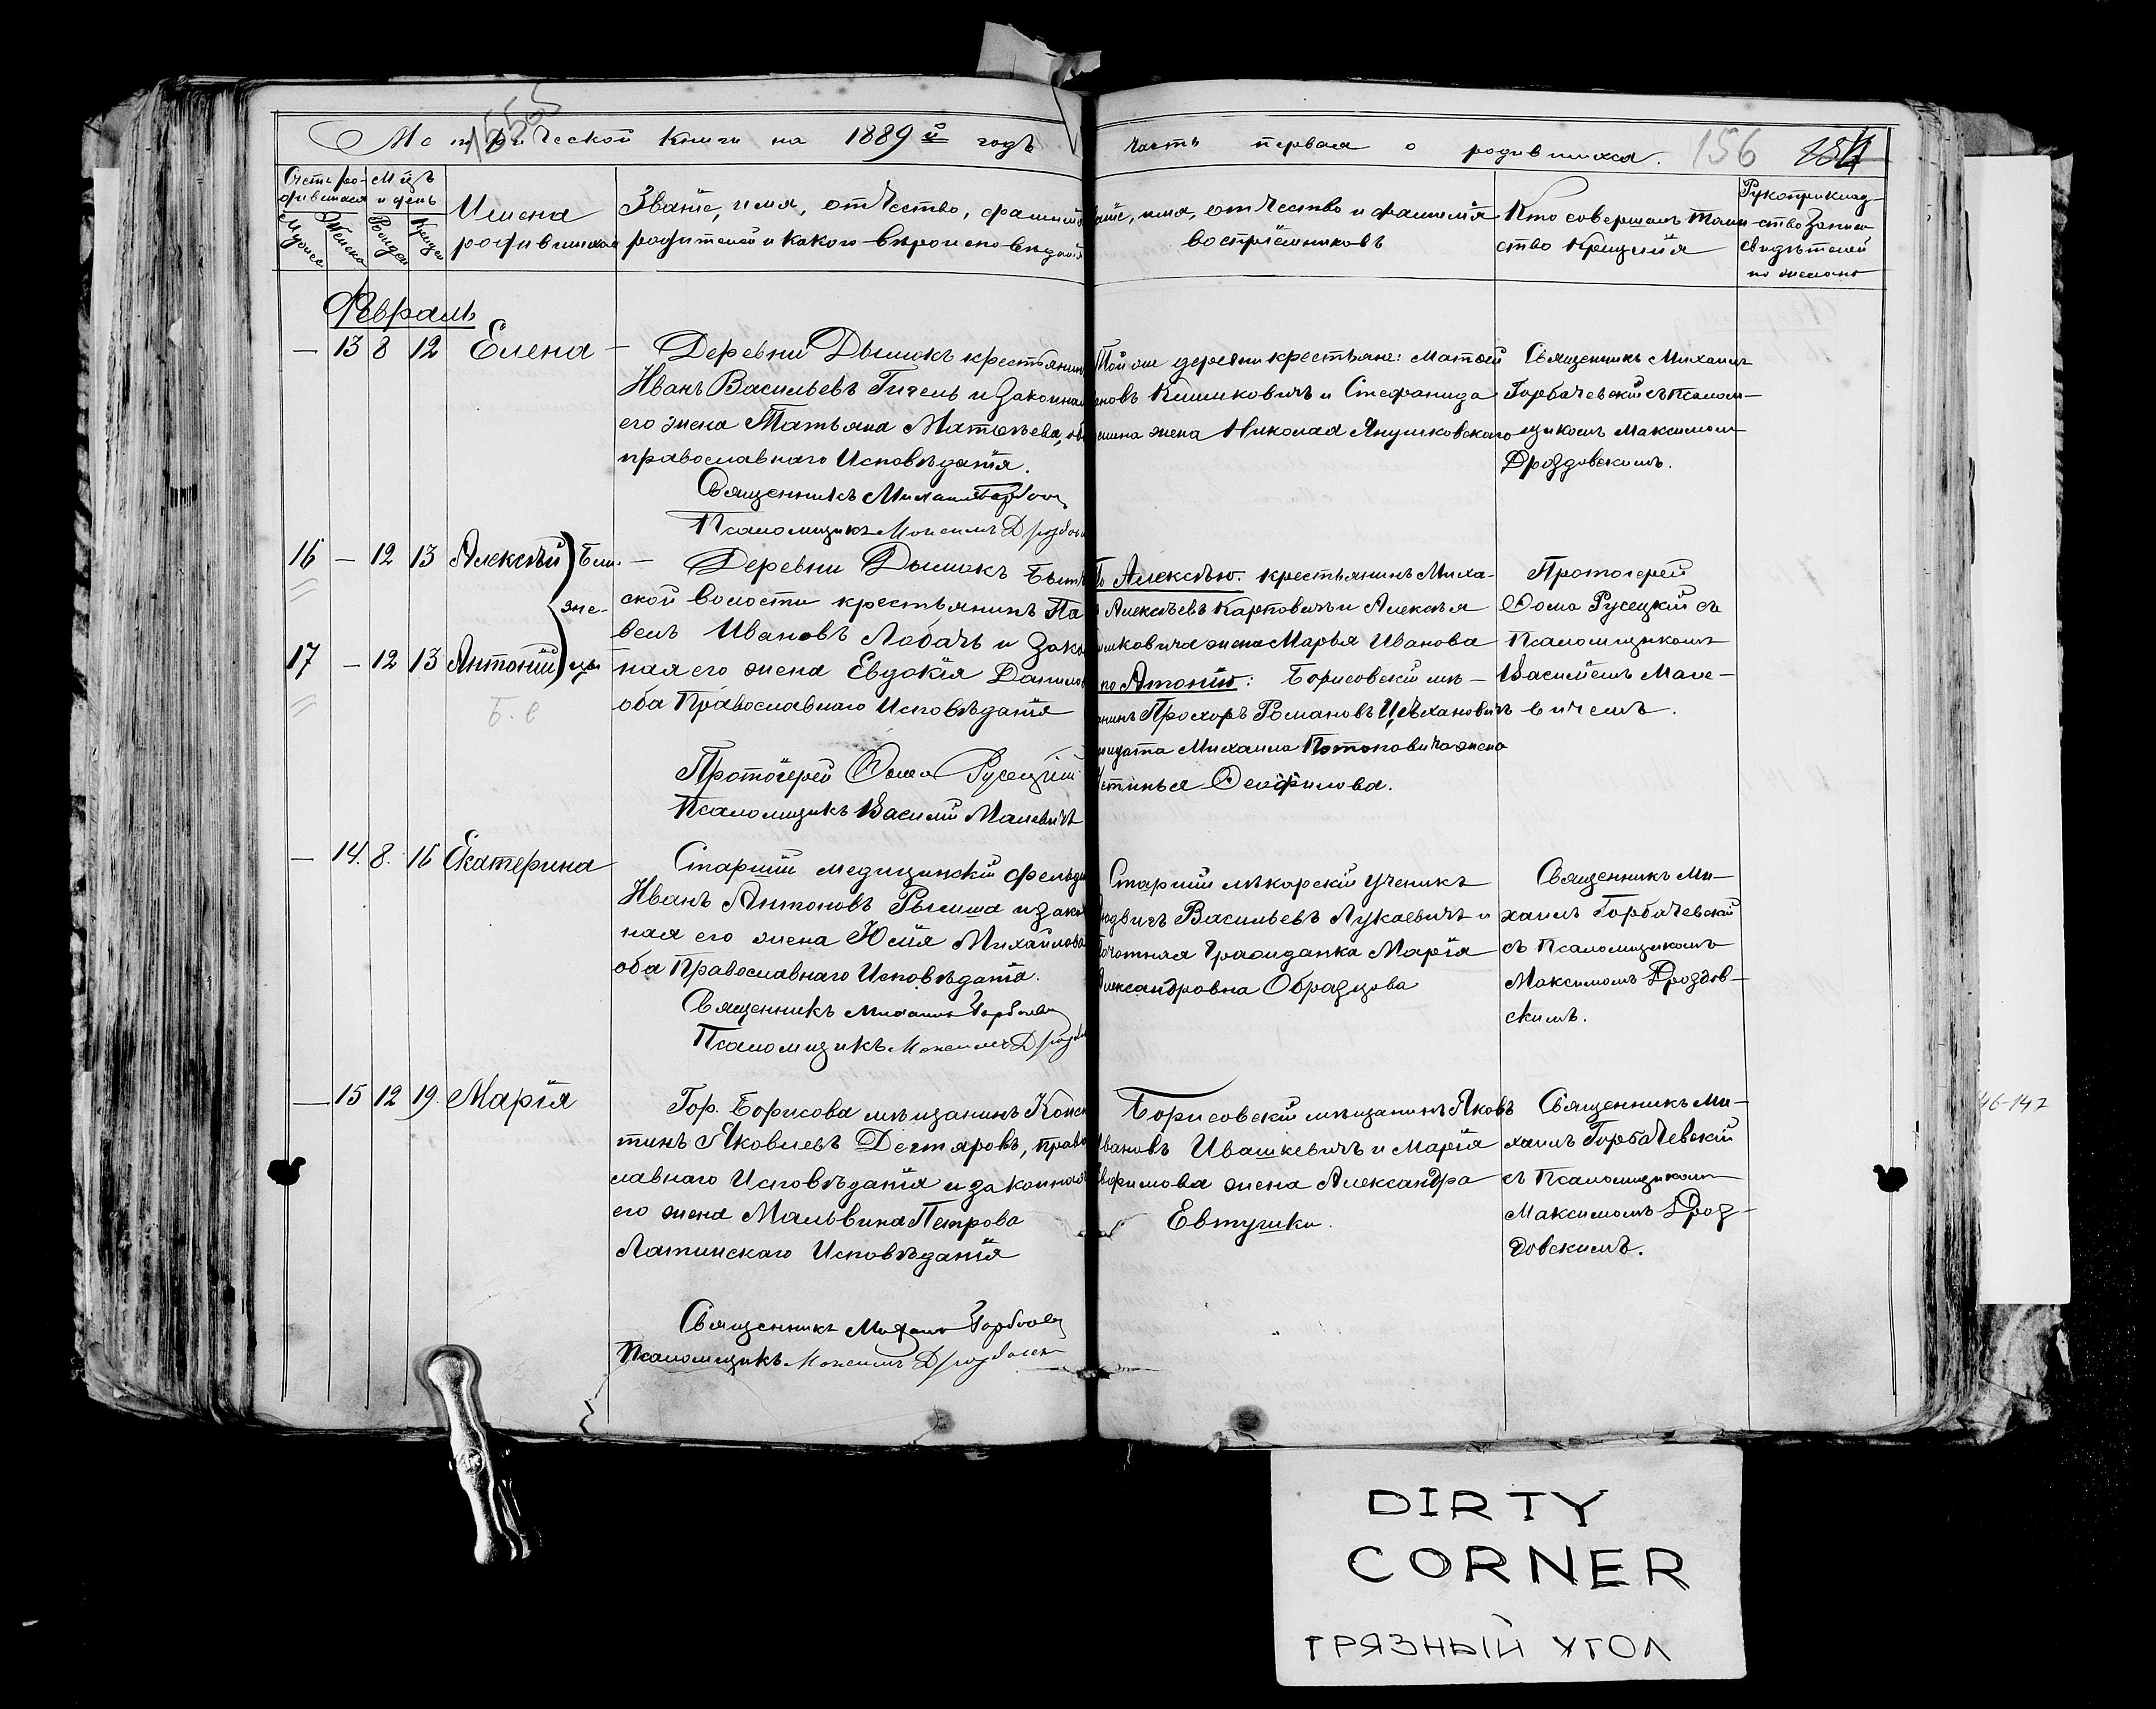 Метрической книги на 1889й годъ
часть первая о родившихся. 156
Счетъ ро-
дившихся
Мцъ
и день
Мужеск
Женска
Рожден
Крещен
Имена
родившихся
Званіе, имя, отчество, фамилія
родителей и какого вѣроисповѣданія
званіе, имя, отчество и фамилія
воспріемниковъ
Кто совершалъ таин-
ство крещенія
Рукоприклад-
ство
свидѣтелей
по желанію
Февраль
— 13 8 12 Елена —
Деревни Дымокъ крестьянинъ
Иванъ Васильевъ Гигель и законная
его жена Татьяна Матѳѣева, оба
православнаго Исповѣданія.
Священникъ Михаилъ Горбач
Псаломщикъ Максимъ Дроздов
Той же деревни крестьяне: Матѳей
новъ Климковичъ и Стефанида
жена Николая Янушковскаго
Священникъ Михаилъ
Горбачевскій съ Псалом-
щикомъ Максимом
Дроздовскимъ.
16 — 12 13 Алексѣй Близ-
не-
17 — 12 13 Антоній цы
Б. в
— Деревни Дымокъ Бытч
ской волости крестьянинъ Па
велъ Ивановъ Лобачъ и зако
ная его жена Евдокія Данилов
оба Православнаго Исповѣданія
Протоіерей Ѳома Русецкій
Псаломщикъ Василій Малевичъ
По Алексѣю: крестьянинъ Миха-
Алексѣевъ Карповичъ и Алексѣя
жена Марья Иванова
по Антонію: Борисовскій мѣ-
щанинъ Прохоръ Романовъ Цѣхановичъ
солдата Михаила Потаповича жена
Устинья Ѳеофилова.
Протоіерей
Ѳома Русецкій съ
Псаломщикомъ
Василіемъ Мале-
вичемъ.
— 14. 8. 16 Екатерина
Старшій медицинскій фельдш
Иванъ Антоновъ Рымша и закон
ная его жена Юлія Михайлова
оба Православнаго Исповѣданія.
Священникъ Михаилъ Горбачев
Псаломщикъ Максимъ Дроздов
Старшій лѣкарскій ученикъ
Людвигъ Васильевъ Лукаевичъ и
Почотная Гражданка Марія
Александровна Образцова
Священникъ Ми-
хаилъ Горбачевскій
съ Псаломщикомъ
Максимомъ Дроздов-
скимъ.
— 15 12 19. Марія
Гор. Борисова мѣщанинъ Конст
тинъ Яковлевъ Дегтяровъ, право
славнаго Исповѣданія и законная
его жена Мальвина Петрова
Латинскаго Исповѣданія
Священникъ Михаилъ Горбачев
Псаломщикъ Максимъ Дроздовск
Борисовскій мѣщанинъ Яковъ
Ивановъ Ивашкевичъ и Марія
жена Александра
Евтушки.
Священникъ Ми-
хаилъ Горбачевскій
съ Псаломщикомъ
Максимомъ Дроз-
довскимъ.
46-147
DIRTY
CORNER
ГРЯЗНЫЙ УГОЛ